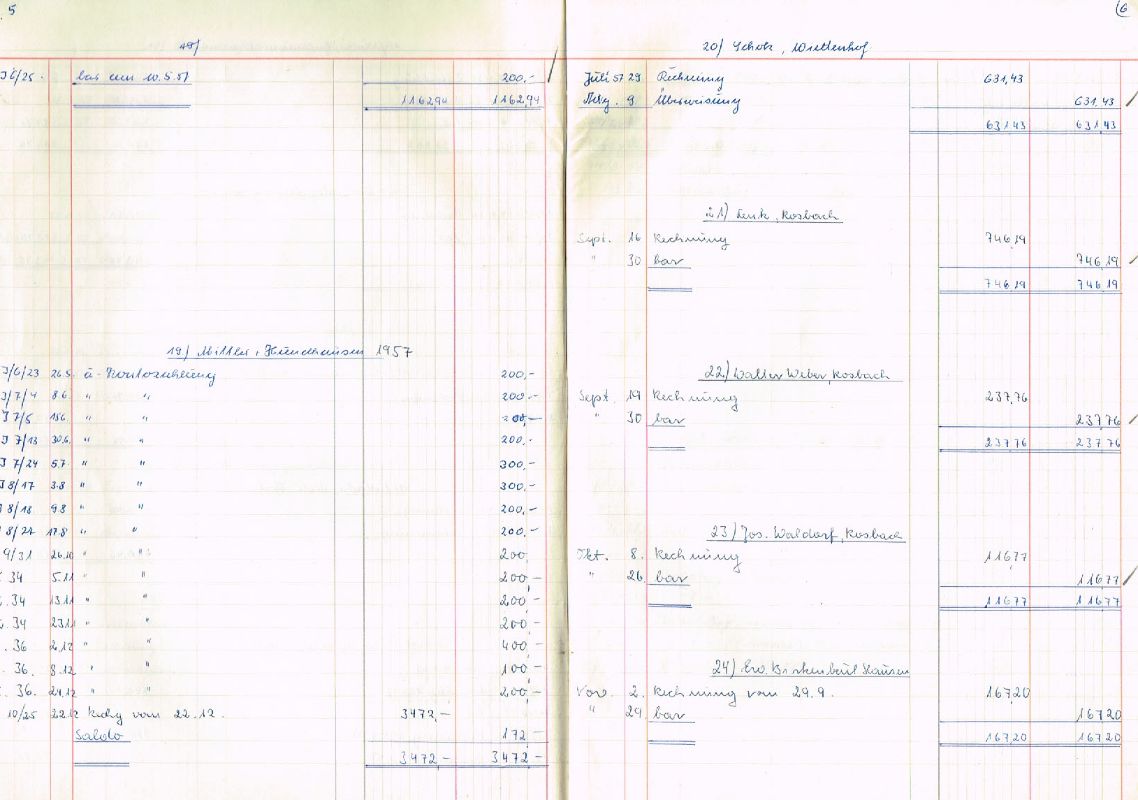 5
49)
bar am 10.5.57 200,-
1162,94 1162,94
19) Mittler + Hundhausen 1957
J/6/23 26.5. à-Kontozahlung 200,-
J/7/4 8.6. " " 200,-
J 7/5 15.6. " " 200,-
J 7/13 30.6. " " 200,-
J 7/24 5.7. " " 300,-
J 8/17 3.8 " " 300,-
J 8/18 9.8 " " 200,-
8/24 17.8 " " 200,-
9/31 26.10 " " 200,
34 5.11 " " 200,-
34 13.11 " " 200,-
34 23.11 " " 200,-
36 2.12 " " 400,-
36. 8.12 " " 100,-
36. 24.12 " " 200,-
10/25 22.12 Rechg vom 22.12. 3472,-
Saldo 172,-
3472,- 3472,-
6
20) Scholz,
Juli 57 29 Rechnung 631,43
Aug. 9 Überweisung 631,43
631,43 631,43
21) Lenk, Rosbach
Sept. 16 Rechnung 746,19
" 30 bar 746,19
746,19 746,19
22) Walter Weber, Rosbach
Sept. 19 Rechnung 237,76
" 30 bar 237,76
237,76 237,76
23) Jos. Waldorf, Rosbach
Okt. 8. Rechnung 116,77
" 26. bar 116,77
116,77 116,77
24) Birkenbeul Hausen
Nov. 2. Rechnung vom 29.9. 167,20
" 29. bar 167,20
167,20 167,20